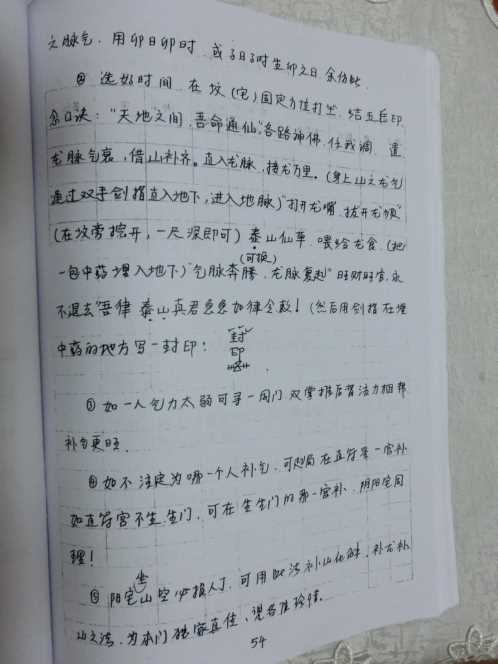 之脉气. 用卯日卯时. 或子日子时坐卯之日 余仿此
② 选好时间 在坟(宅)固定方位打坐. 结五岳印
念口诀: "天地之间, 吾命通仙", 各路神佛, 任我调 遣
龙脉气衰, 借山补齐。直入龙脉, 接龙万里。(身上山之龙气
通过双手剑指直入地下, 进入地脉)"打开龙嘴, 拔开龙须"
(在坟旁挖开, 一尺深即可) 泰山仙草 喂给龙食 (把
(可换)
一包中药埋入地下)"气脉奔腾, 龙脉复起" 旺财旺官, 永
不退去"吾律 泰山真君急急如律令敕! (然后用剑指在埋
中药的地方写一封印:
封
印
③ 如一人气力太弱可寻一同门 双掌推后背 活力相帮
补气更旺.
④ 如不注定为哪一个人补气, 可起局在直符第一宫补
如直符宫不生生门, 可在生生门的那一宫补. 阴阳宅同
理!
坐
⑤ 阳宅山空必损人丁, 可用此法补山化解. 补龙补
山之法, 为本门独家真传, 望各位珍惜.
54